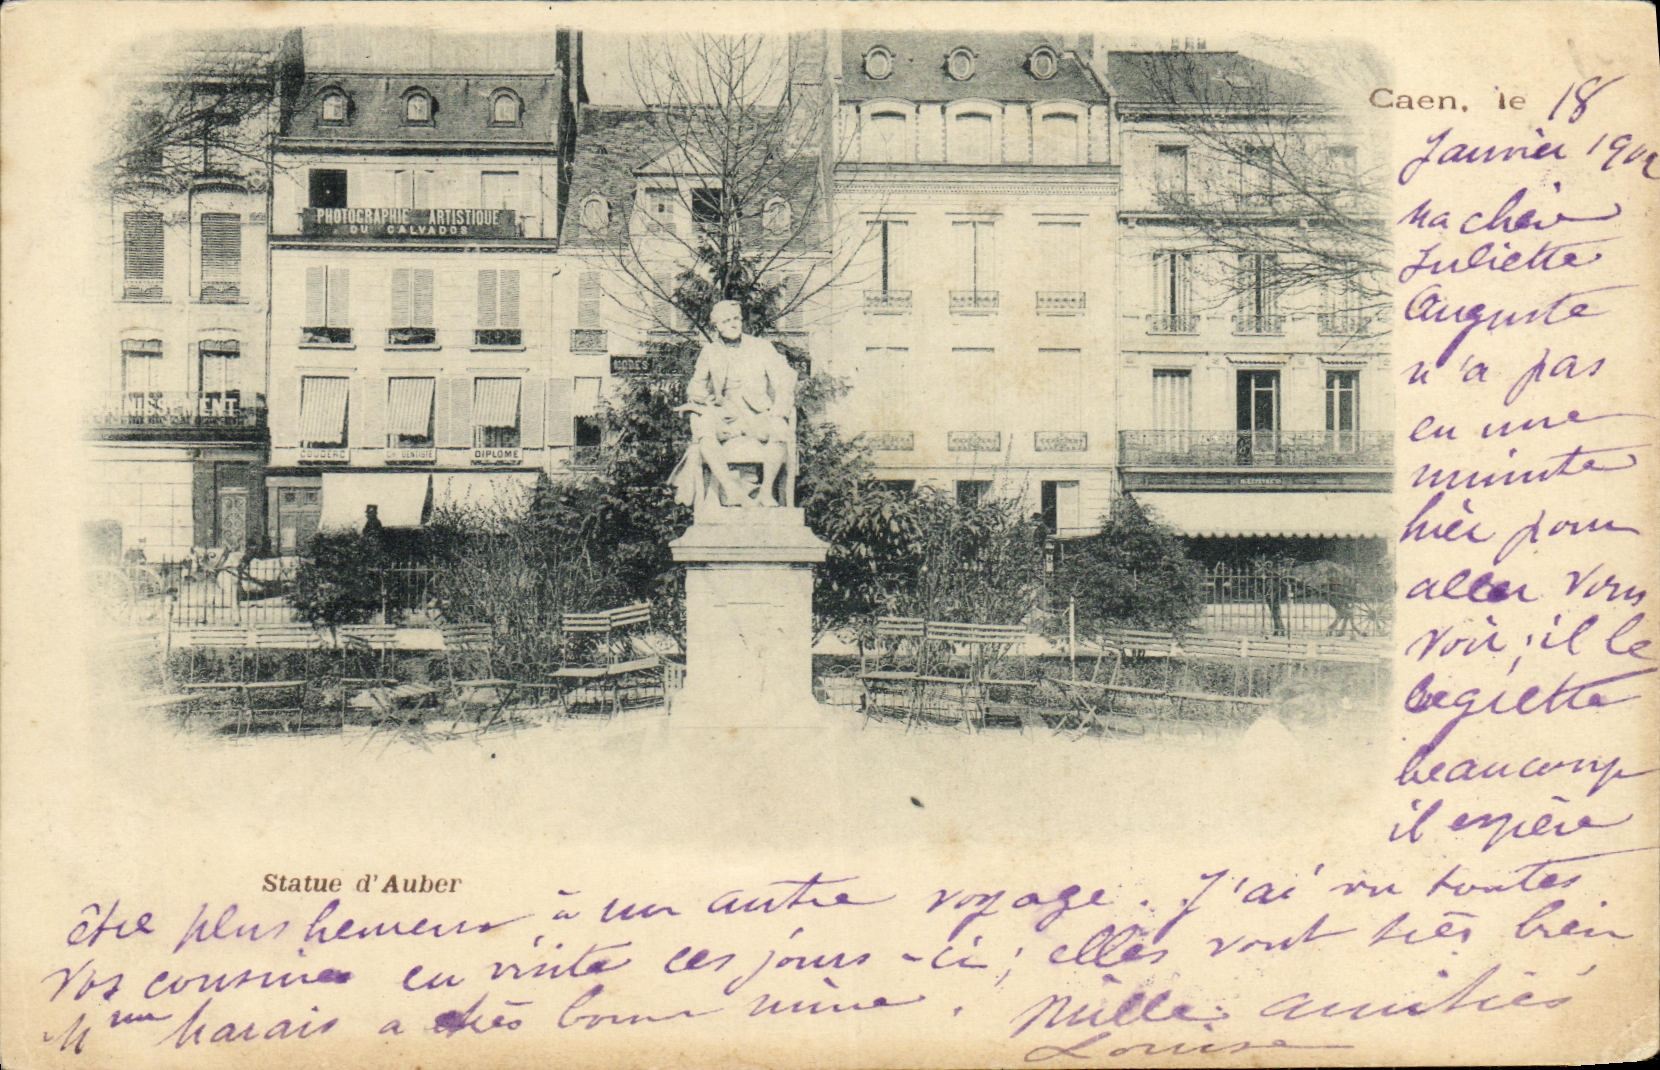 PHOTOGRAPHIE ARTISTIQUE
DU CALVADOS
COUDERC
CH. DENTISTE
DIPLOMÉ
Caen, le 18
Janvier 1902
Ma chère
Juliette
Auguste
n'a pas
eu une
minute
hier pour
aller vous
voir; il le
regrette
beaucoup
il espère
Statue d'Auber
être plus heureux à un autre voyage. J'ai vu toutes
vos cousines en visite ces jours-ci; elles vont très bien
Mme Marais a très bonne mine. Mille amitiés
Louise